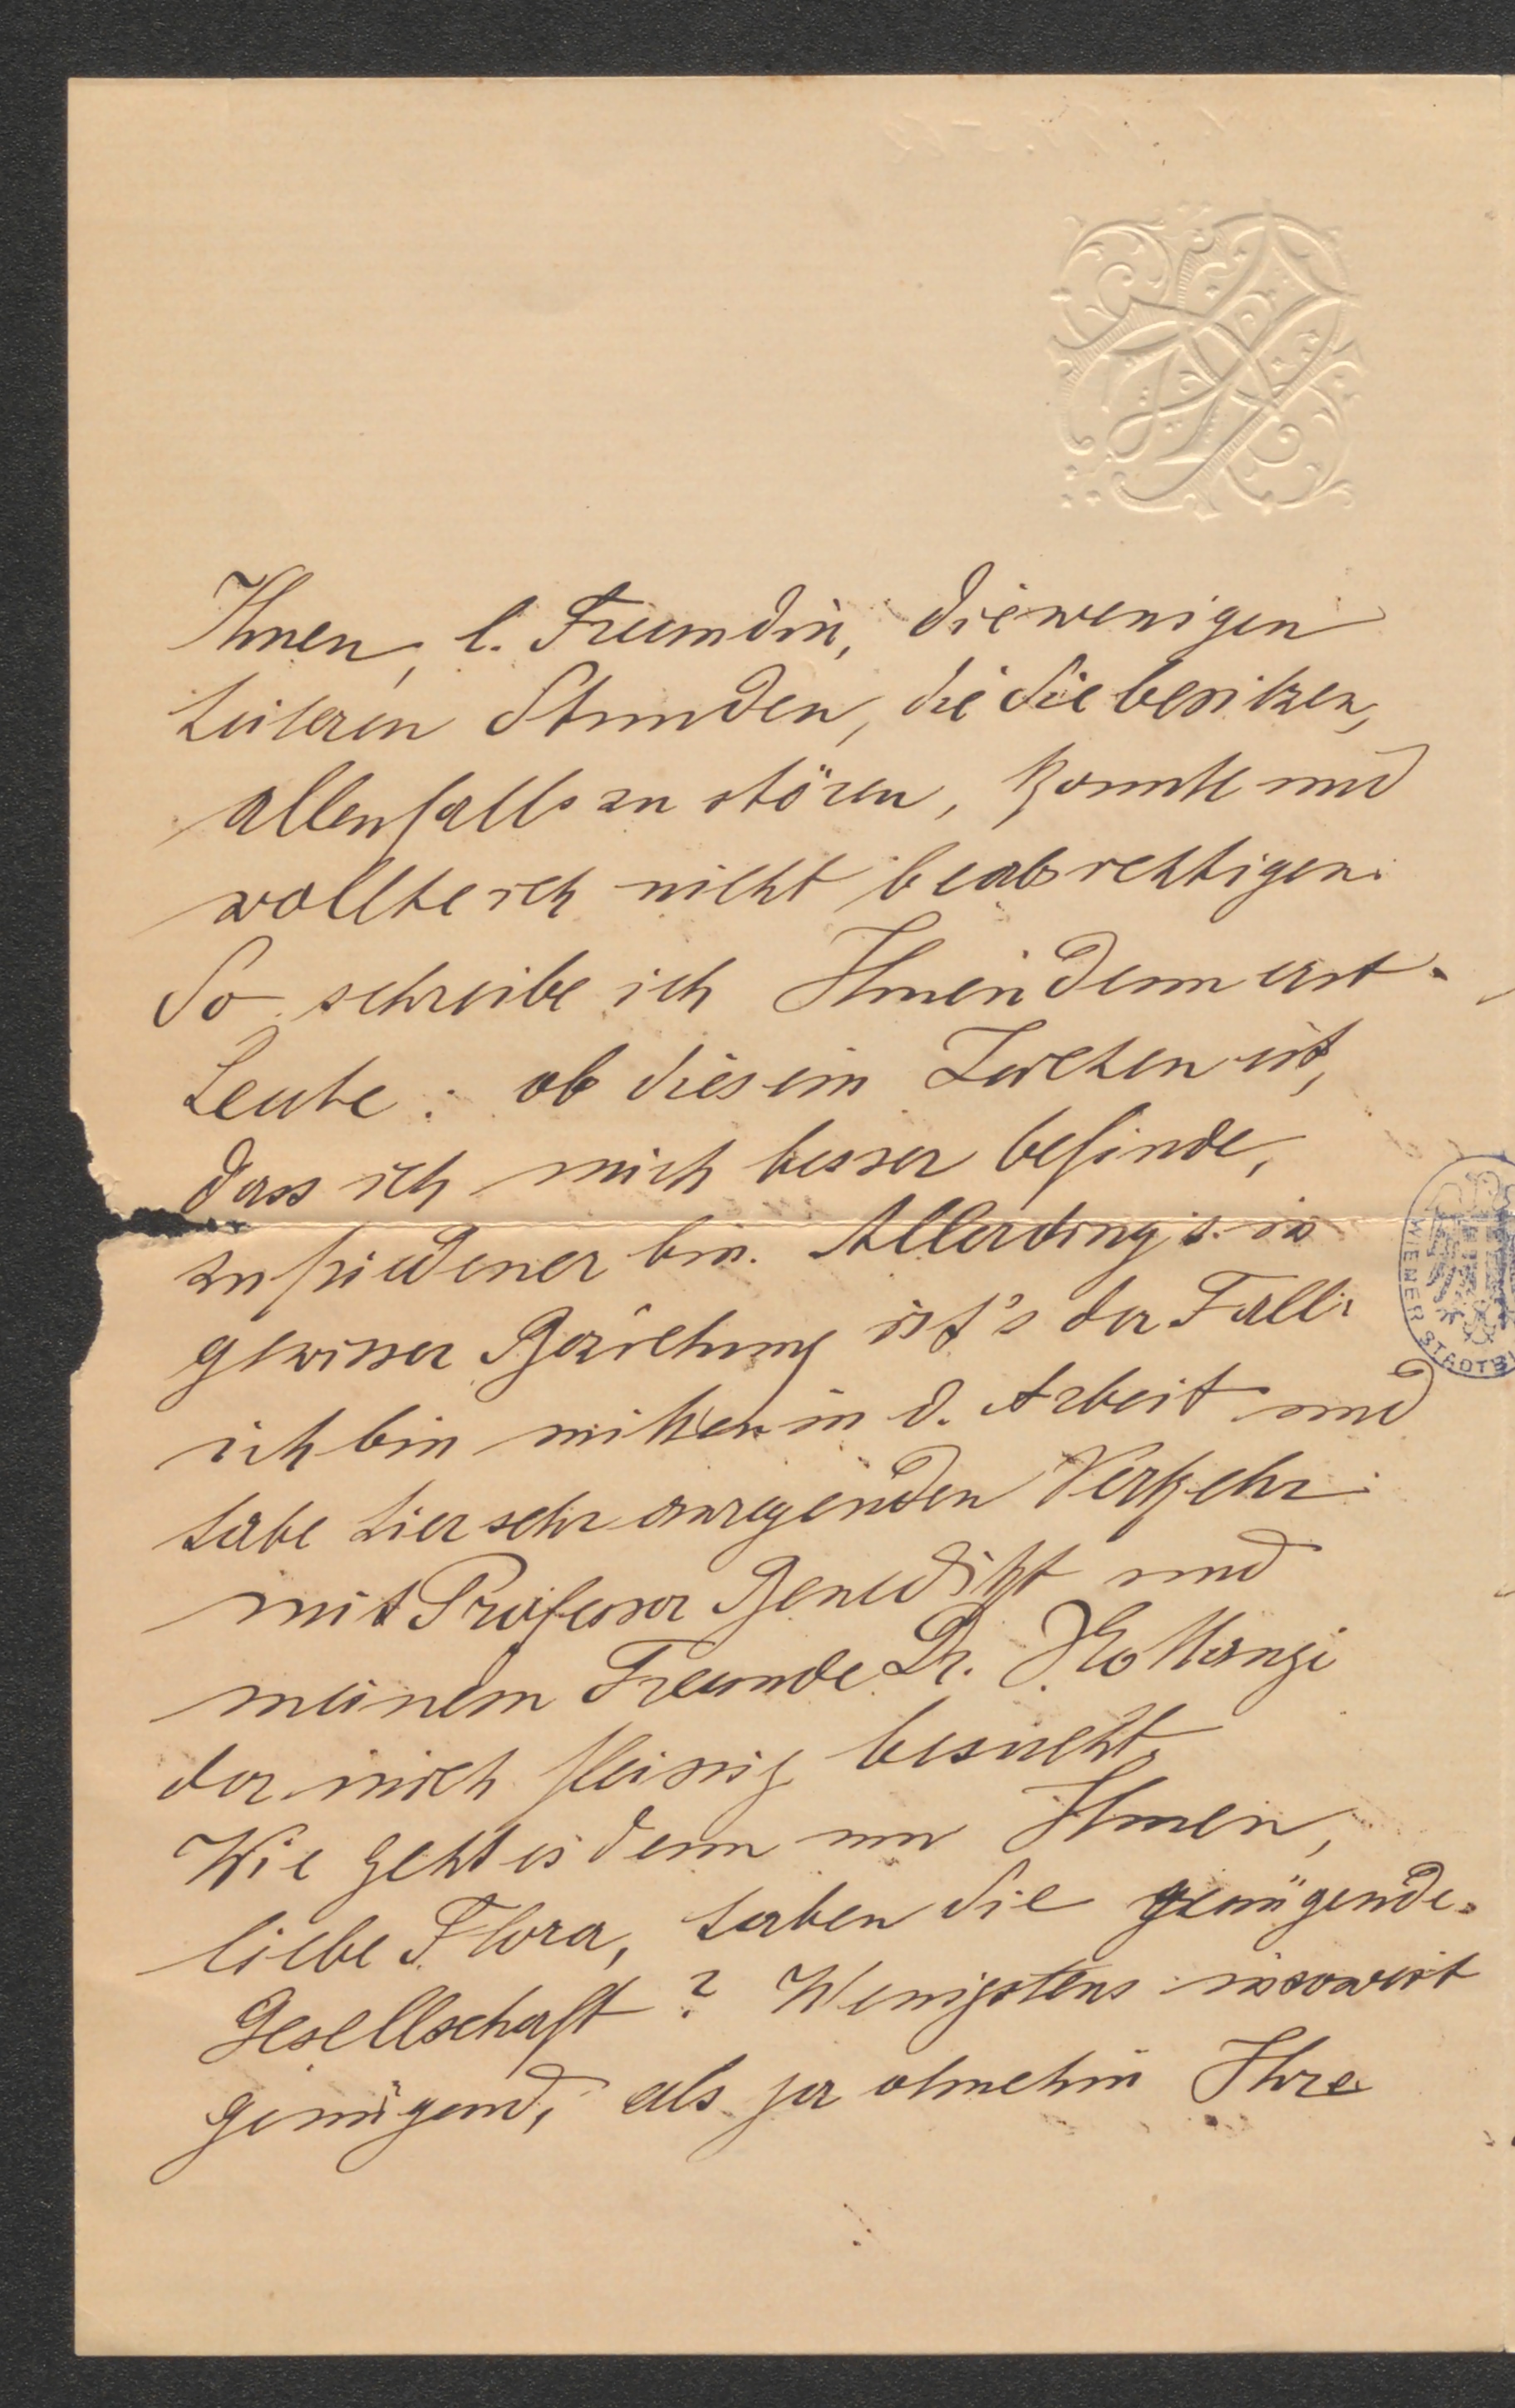 Ihnen, l. Freundin, die wenigen
heiteren Stunden, die Sie besitzen,
allenfalls zu stören, konnte und
wollte ich nicht beabsichtigen.
So schreibe ich Ihnen denn erst
heute: ob dies ein Zeichen ist,
dass ich mich besser befinde,
zufriedener bin. Allerdings in
gewisser Beziehung ist's der Fall:
ich bin mitten in d. Arbeit und
habe hier sehr anregenden Verkehr
mit Professor Benedikt und
meinem Freunde Dr.
der mich fleissig besucht.
Wie geht es denn nun Ihnen,
liebe Flora, haben Sie genügende
Gesellschaft? Wenigstens insoweit
genügend, als ja ohnehin Ihre
WIENER STADTB